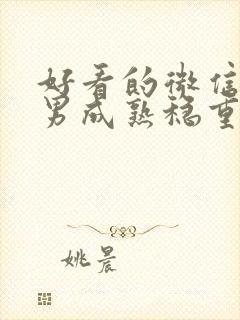 好看的微信
男成熟稳重
姚晨